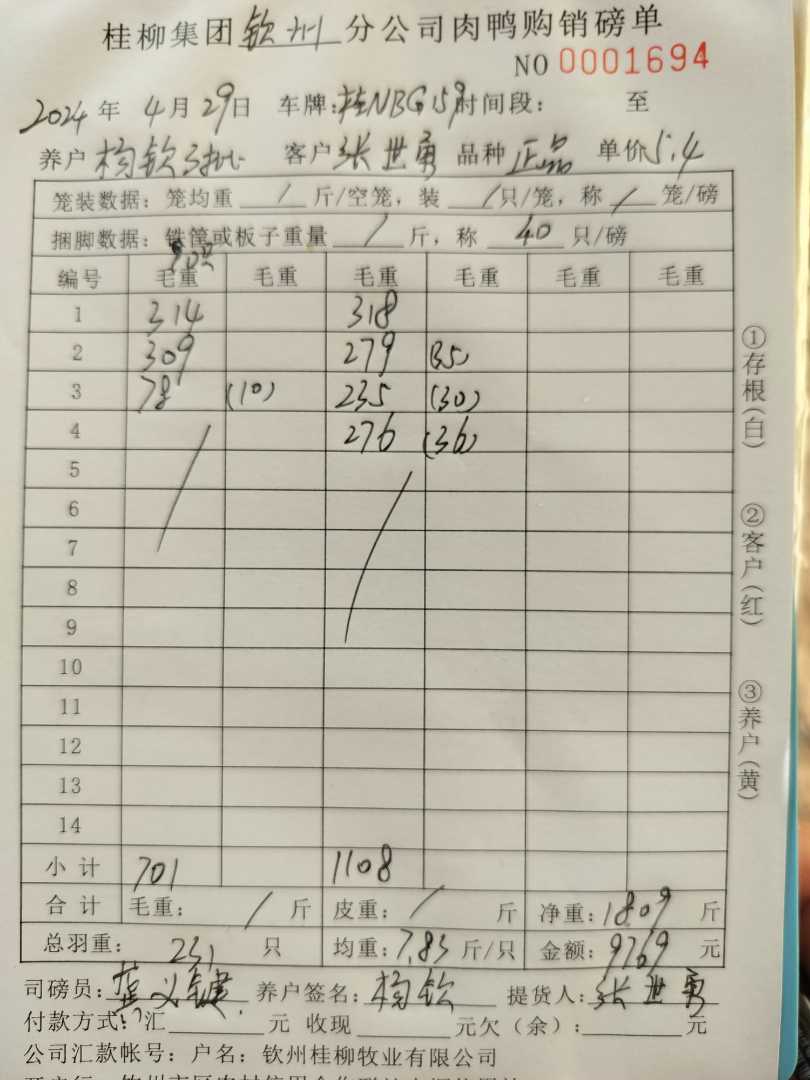 桂柳集团钦州分公司肉鸭购销磅单
NO 0001694
2024年4月29日 车牌:桂NBG159时间段: 至
养户 杨钦3批 客户张世勇 品种正品 单价5.4
笼装数据: 笼均重 / 斤/空笼, 装 / 只/笼, 称 / 笼/磅
捆脚数据: 铁筐或板子重量 / 斤, 称 40 只/磅
编号 毛重 毛重 毛重 毛重 毛重 毛重
1 314 318
2 309 279 (35)
3 78 (10) 235 (30)
4 276 (36)
5
6
7
8
9
10
11
12
13
14
小计 701 1108
合计 毛重: / 斤 皮重: / 斤 净重:1809 斤
总羽重: 231 只 均重:7.83 斤/只 金额:9769 元
司磅员: 义键 养户签名: 杨钦 提货人:张世勇
付款方式: 汇 元 收现 元欠(余): 元
公司汇款帐号: 户名: 钦州桂柳牧业有限公司
①存根(白)
②客户(红)
③养户(黄)